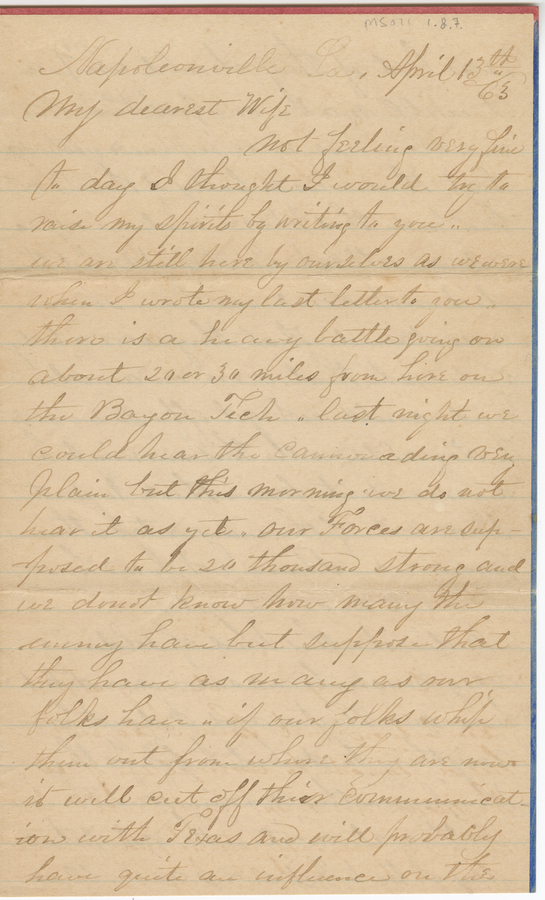 MS011 1.8.7
Napoleonville La, April 13th "63
My dearest Wife
not feeling very fine
to day I thought I would try to
raise my spirits by writing to you "
we are still here by ourselves as we were
when I wrote my last letter to you "
there is a heavy battle going on
about 20 or 30 miles from here on
the Bayou Tech " last night we
could hear the cannonading very
plain but this morning we do not
hear it as yet " our Forces are sup-
posed to be 20 thousand strong and
we donot know how many the
enemy have but suppose that
they have as many as our
folks have " if our folks whip
them out from where they are now
it will cut off thier communicat-
ion with Texas and will probably
have quite an influence on the